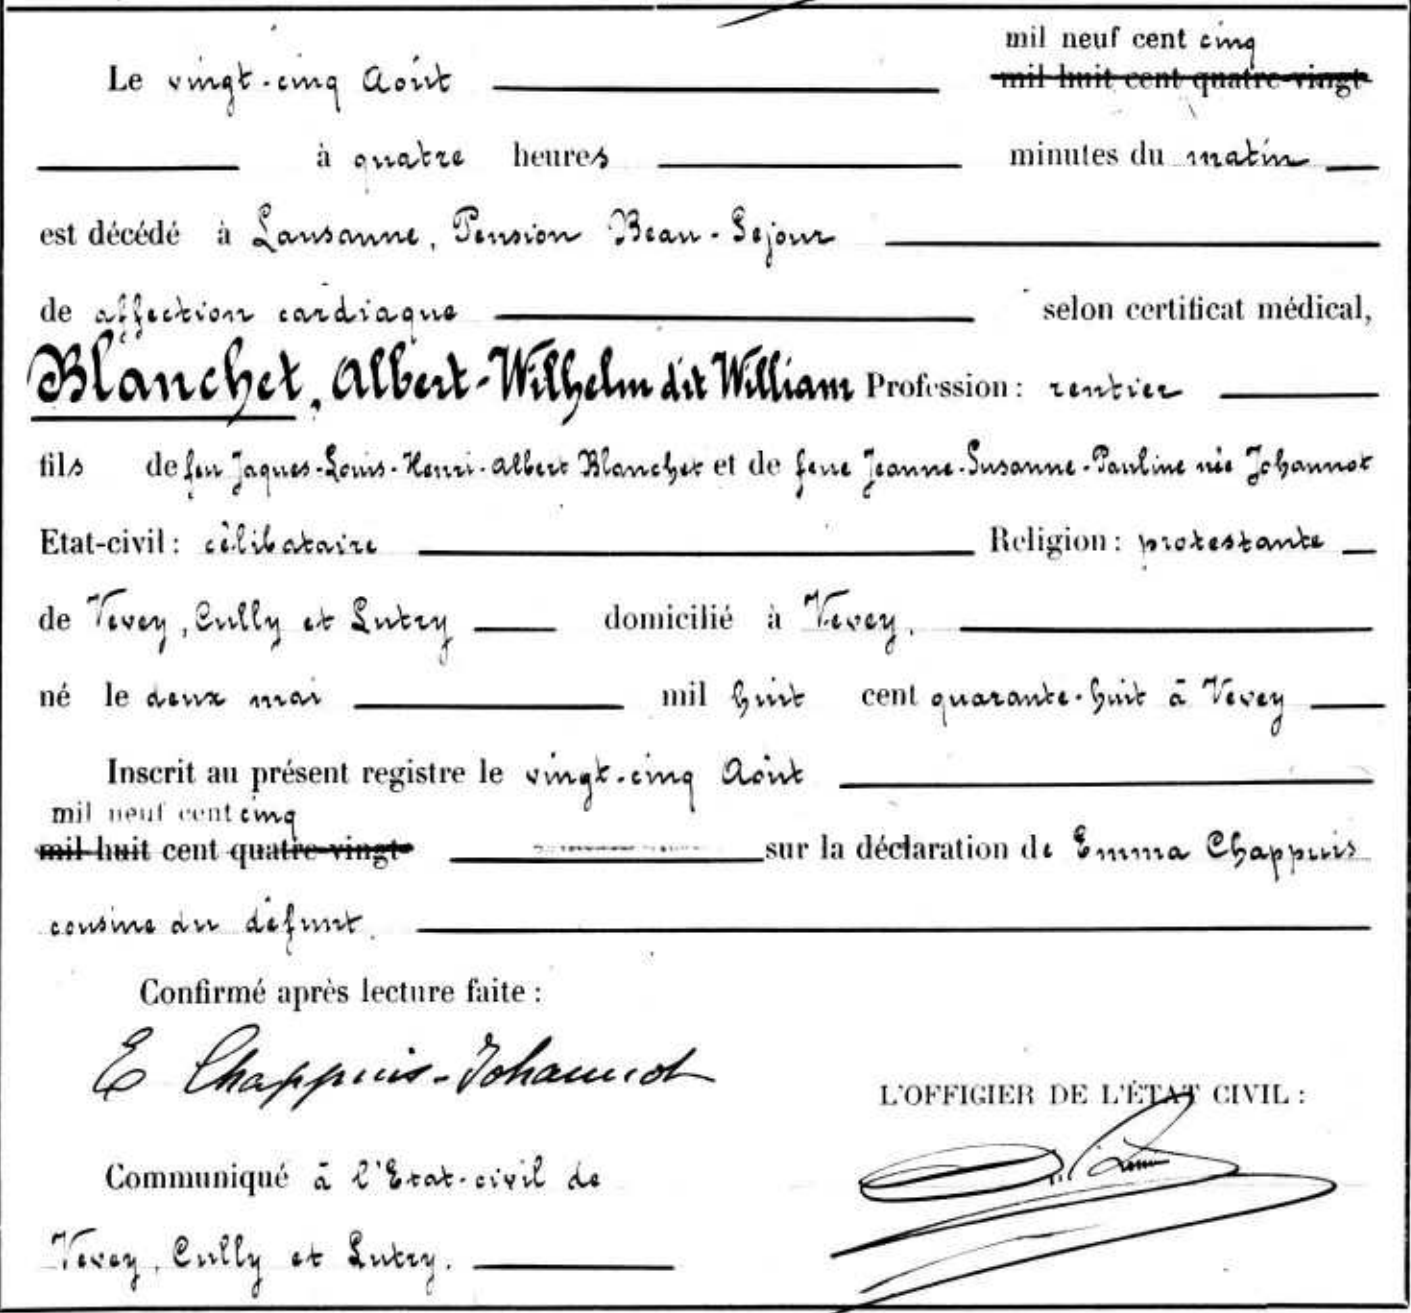 mil neuf cent cinq
Le vingt-cinq Août mil huit cent quatre-vingt
à quatre heures minutes du matin
est décédé à Lausanne, Pension Beau-Sejour
de affection cardiaque selon certificat médical,
Blanchet, Albert-Wilhelm dit William Profession : rentier
fils de feu Jaques-Louis-Henri-Albert Blanchet et de feue Jeanne-Susanne-Pauline née Johannot
Etat-civil : célibataire Religion : protestante
de Vevey, Cully et Lutry domicilié à Vevey,
né le deux mai mil huit cent quarante-huit à Vevey
Inscrit au présent registre le vingt-cinq Août
mil neuf cent cinq
mil huit cent quatre-vingt sur la déclaration de Emma Chappuis
cousine du défunt.
Confirmé après lecture faite :
E Chappuis-Johannot
L'OFFICIER DE L'ÉTAT CIVIL :
Communiqué à l'Etat-civil de
Vevey, Cully et Lutry.